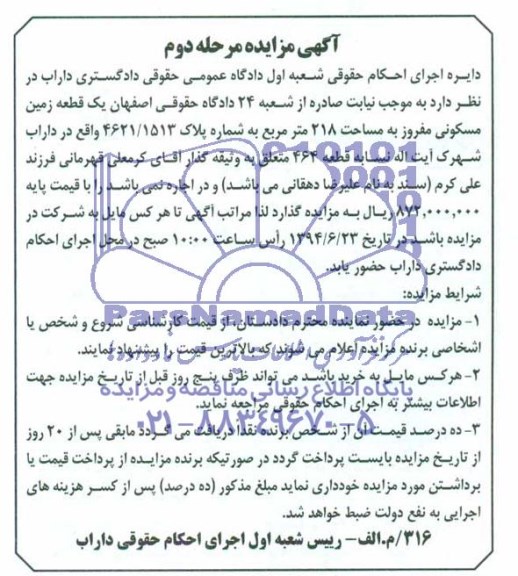 آگهی مزایده مرحله دوم
دایره اجرای احکام حقوقی شعبه اول دادگاه عمومی حقوقی دادگستری داراب در
نظر دارد به موجب نیابت صادره از شعبه ۲۴ دادگاه حقوقی اصفهان یک قطعه زمین
مسکونی مفروز به مساحت ۲۱۸ متر مربع به شماره پلاک ۴۶۲۱/۱۵۱۳ واقع در داراب
شهرک آیت اله نسابه قطعه ۴۶۴ متعلق به وثیقه گذار آقای کرمعلی قهرمانی فرزند
علی کرم (سند به نام علیرضا دهقانی می باشد) و در اجاره نمی باشد را با قیمت پایه
۸۷۲,۰۰۰,۰۰۰ ریال به مزایده گذارد لذا مراتب آگهی تا هر کس مایل به شرکت در
مزایده باشد در تاریخ ۱۳۹۴/۶/۲۳ رأس ساعت ۱۰:۰۰ صبح در محل اجرای احکام
دادگستری داراب حضور یابد.
شرایط مزایده:
۱- مزایده در حضور نماینده محترم دادستان، از قیمت کارشناسی شروع و شخص یا
اشخاصی برنده مزایده اعلام می شوند که بالاترین قیمت را پیشنهاد نمایند.
۲- هرکس مایل به خرید باشد می تواند ظرف پنج روز قبل از تاریخ مزایده جهت
اطلاعات بیشتر به اجرای احکام حقوقی مراجعه نماید.
۳- ده درصد قیمت آن از شخص برنده نقدا دریافت می گردد مابقی پس از ۲۰ روز
از تاریخ مزایده بایست پرداخت گردد در صورتیکه برنده مزایده از پرداخت قیمت یا
برداشتن مورد مزایده خودداری نماید مبلغ مذکور (ده درصد) پس از کسر هزینه های
اجرایی به نفع دولت ضبط خواهد شد.
۳۱۶/م.الف- رییس شعبه اول اجرای احکام حقوقی داراب
ParsNamadData
پایگاه اطلاع رسانی مناقصه و مزایده
۰۲۱-۸۸۳۴۹۶۷۰-۵